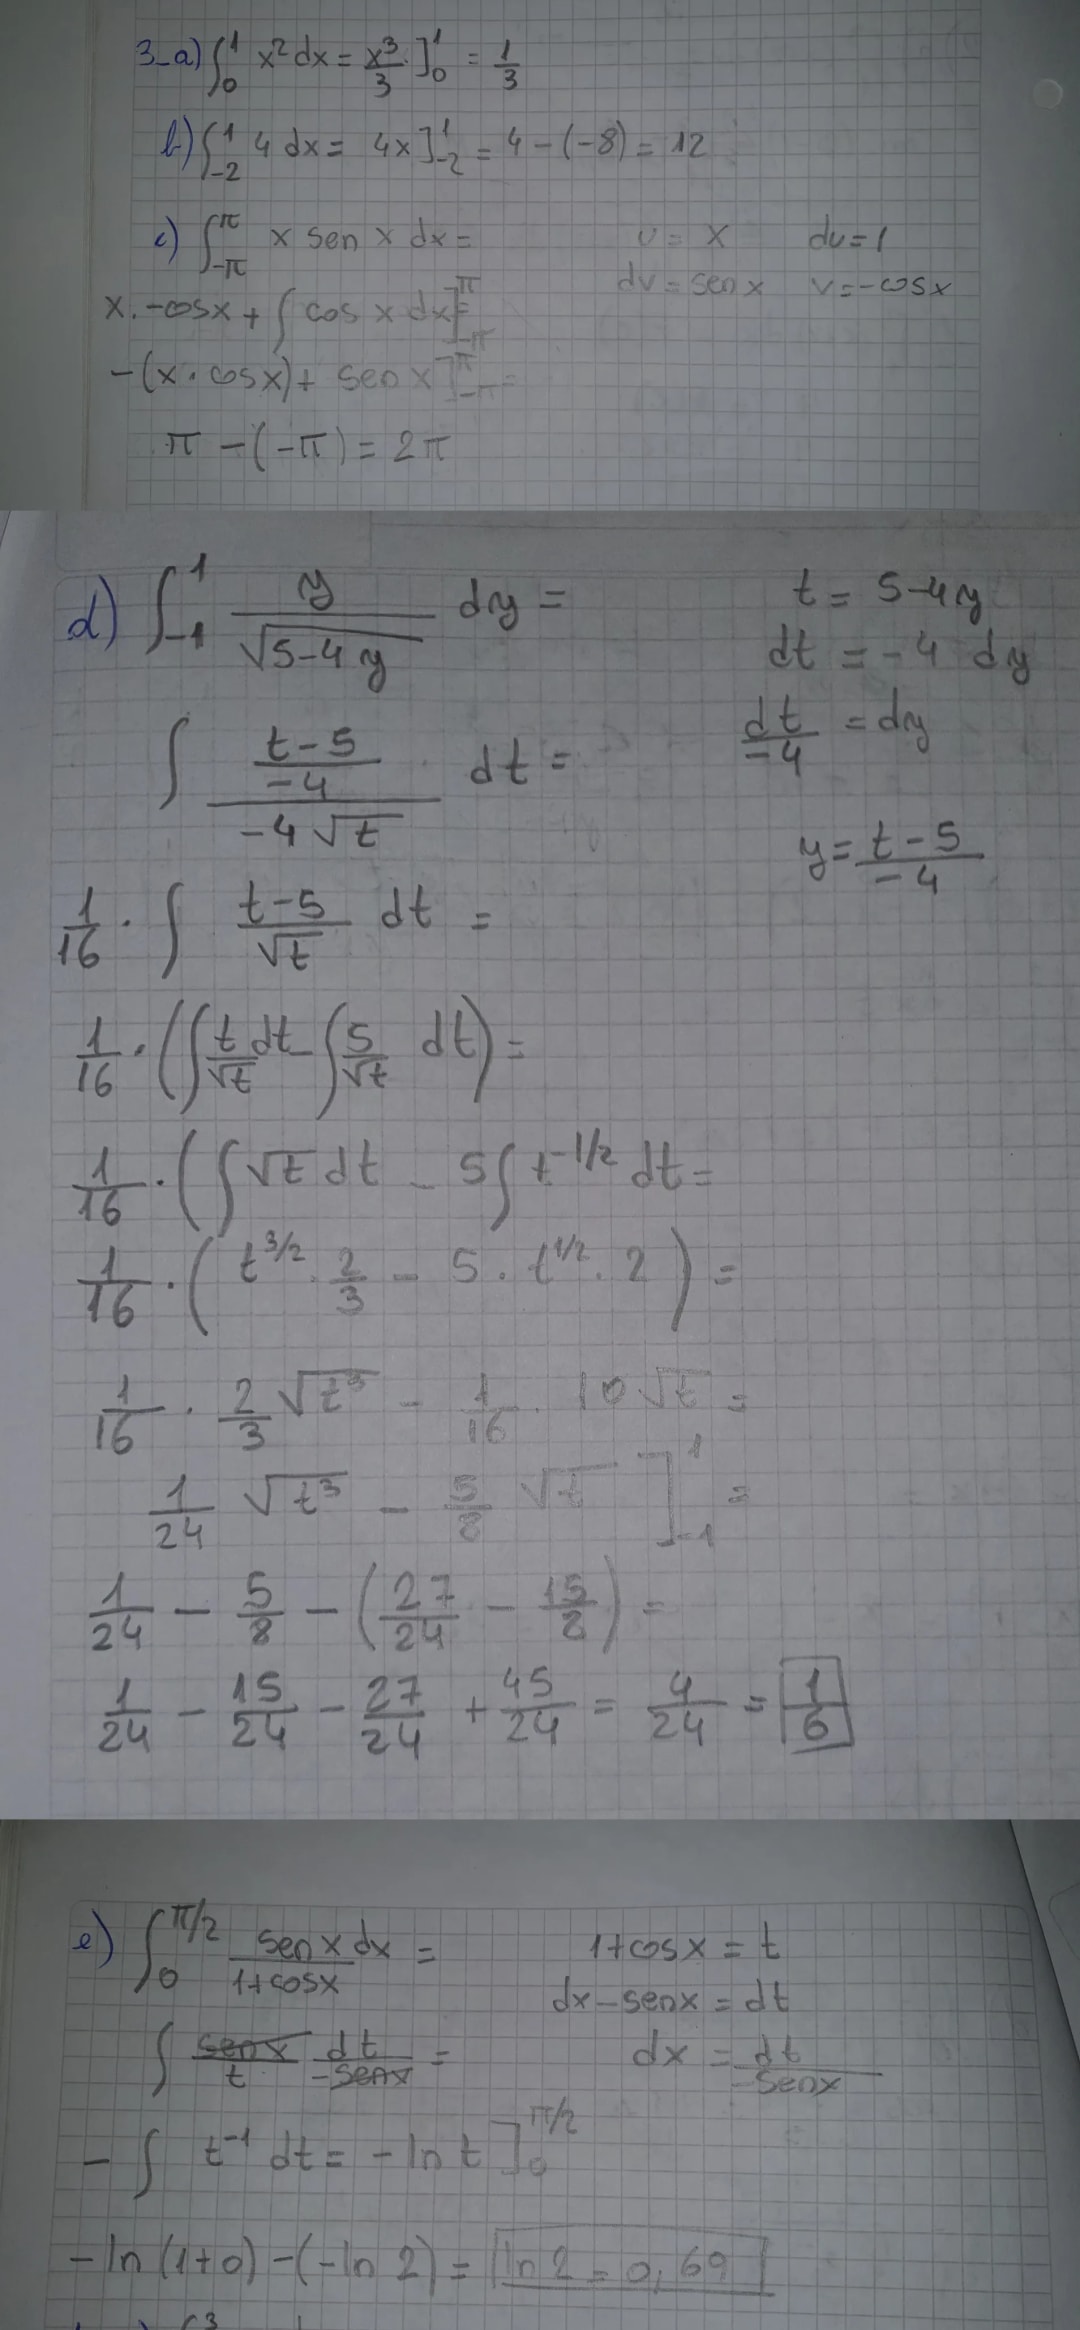 3-a) ∫₀¹ x² dx = x³/3 ]₀¹ = 1/3
b) ∫₋₂¹ 4 dx = 4x ]₋₂¹ = 4 - (-8) = 12
c) ∫₋π^π x sen x dx = u = x du = 1
dv = sen x v = -cos x
x . -cos x + ∫ cos x dx ]₋π^π =
-(x . cos x) + sen x ]₋π^π =
π - (-π) = 2π
d) ∫₋₁¹ y/√(5-4y) dy = t = 5-4y
dt = -4 dy
∫ ((t-5)/-4)/(-4√t) dt = dt/-4 = dy
y = (t-5)/-4
1/16 . ∫ (t-5)/√t dt =
1/16 . (∫ t/√t dt - ∫ 5/√t dt) =
1/16 . (∫ √t dt - 5 ∫ t^-1/2 dt =
1/16 . (t^3/2 . 2/3 - 5 . t^1/2 . 2) =
1/16 . 2/3 √t³ - 1/16 . 10 √t =
1/24 √t³ - 5/8 √t ]₋₁¹ =
1/24 - 5/8 - (27/24 - 15/8) =
1/24 - 15/24 - 27/24 + 45/24 = 4/24 = 1/6
e) ∫₀^π/2 sen x dx/(1+cos x) = 1+cos x = t
dx - sen x = dt
∫ sen x/t dt/-sen x = dx = dt/-sen x
- ∫ t⁻¹ dt = -ln t ]₀^π/2
-ln (1+0) - (-ln 2) = ln 2 = 0,69